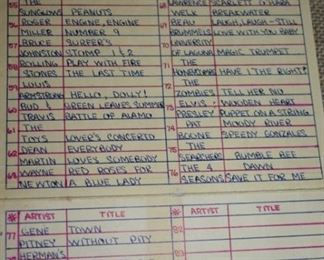 55 THE
SUNGLOWS PEANUTS
56 ROGER ENGINE, ENGINE
MILLER NUMBER 9
57 BRUCE SURFER'S
JOHNSTON STOMP 1 & 2
58 ROLLING PLAY WITH FIRE
STONES THE LAST TIME
59 LOUIS
ARMSTRONG HELLO, DOLLY!
60 BUD & GREEN LEAVES SUMMER
TRAVIS BATTLE OF ALAMO
61 THE
TOYS LOVER'S CONCERTO
62 DEAN EVERYBODY
MARTIN LOVES SOMEBODY
63 WAYNE RED ROSES FOR
NEWTON A BLUE LADY
68 LAWRENCE SCARLETT O'HARA
WELK BREAKWATER
69 BEAU LAUGH, LAUGH - STILL
BRUMMELS IN LOVE WITH YOU BABY
70 UNIVERSITY
OF LAGUNA MAGIC TRUMPET
71 THE
HONEYCOMBS HAVE I THE RIGHT?
72 THE
ZOMBIES TELL HER NO
73 ELVIS WOODEN HEART
PRESLEY PUPPET ON A STRING
74 PAT MOODY RIVER
BOONE SPEEDY GONZALES
75 THE
SEARCHERS BUMBLE BEE
76 THE 4 DAWN
SEASONS SAVE IT FOR ME
# ARTIST TITLE # ARTIST TITLE
77 GENE TOWN 82
PITNEY WITHOUT PITY
HERMAN'S 83